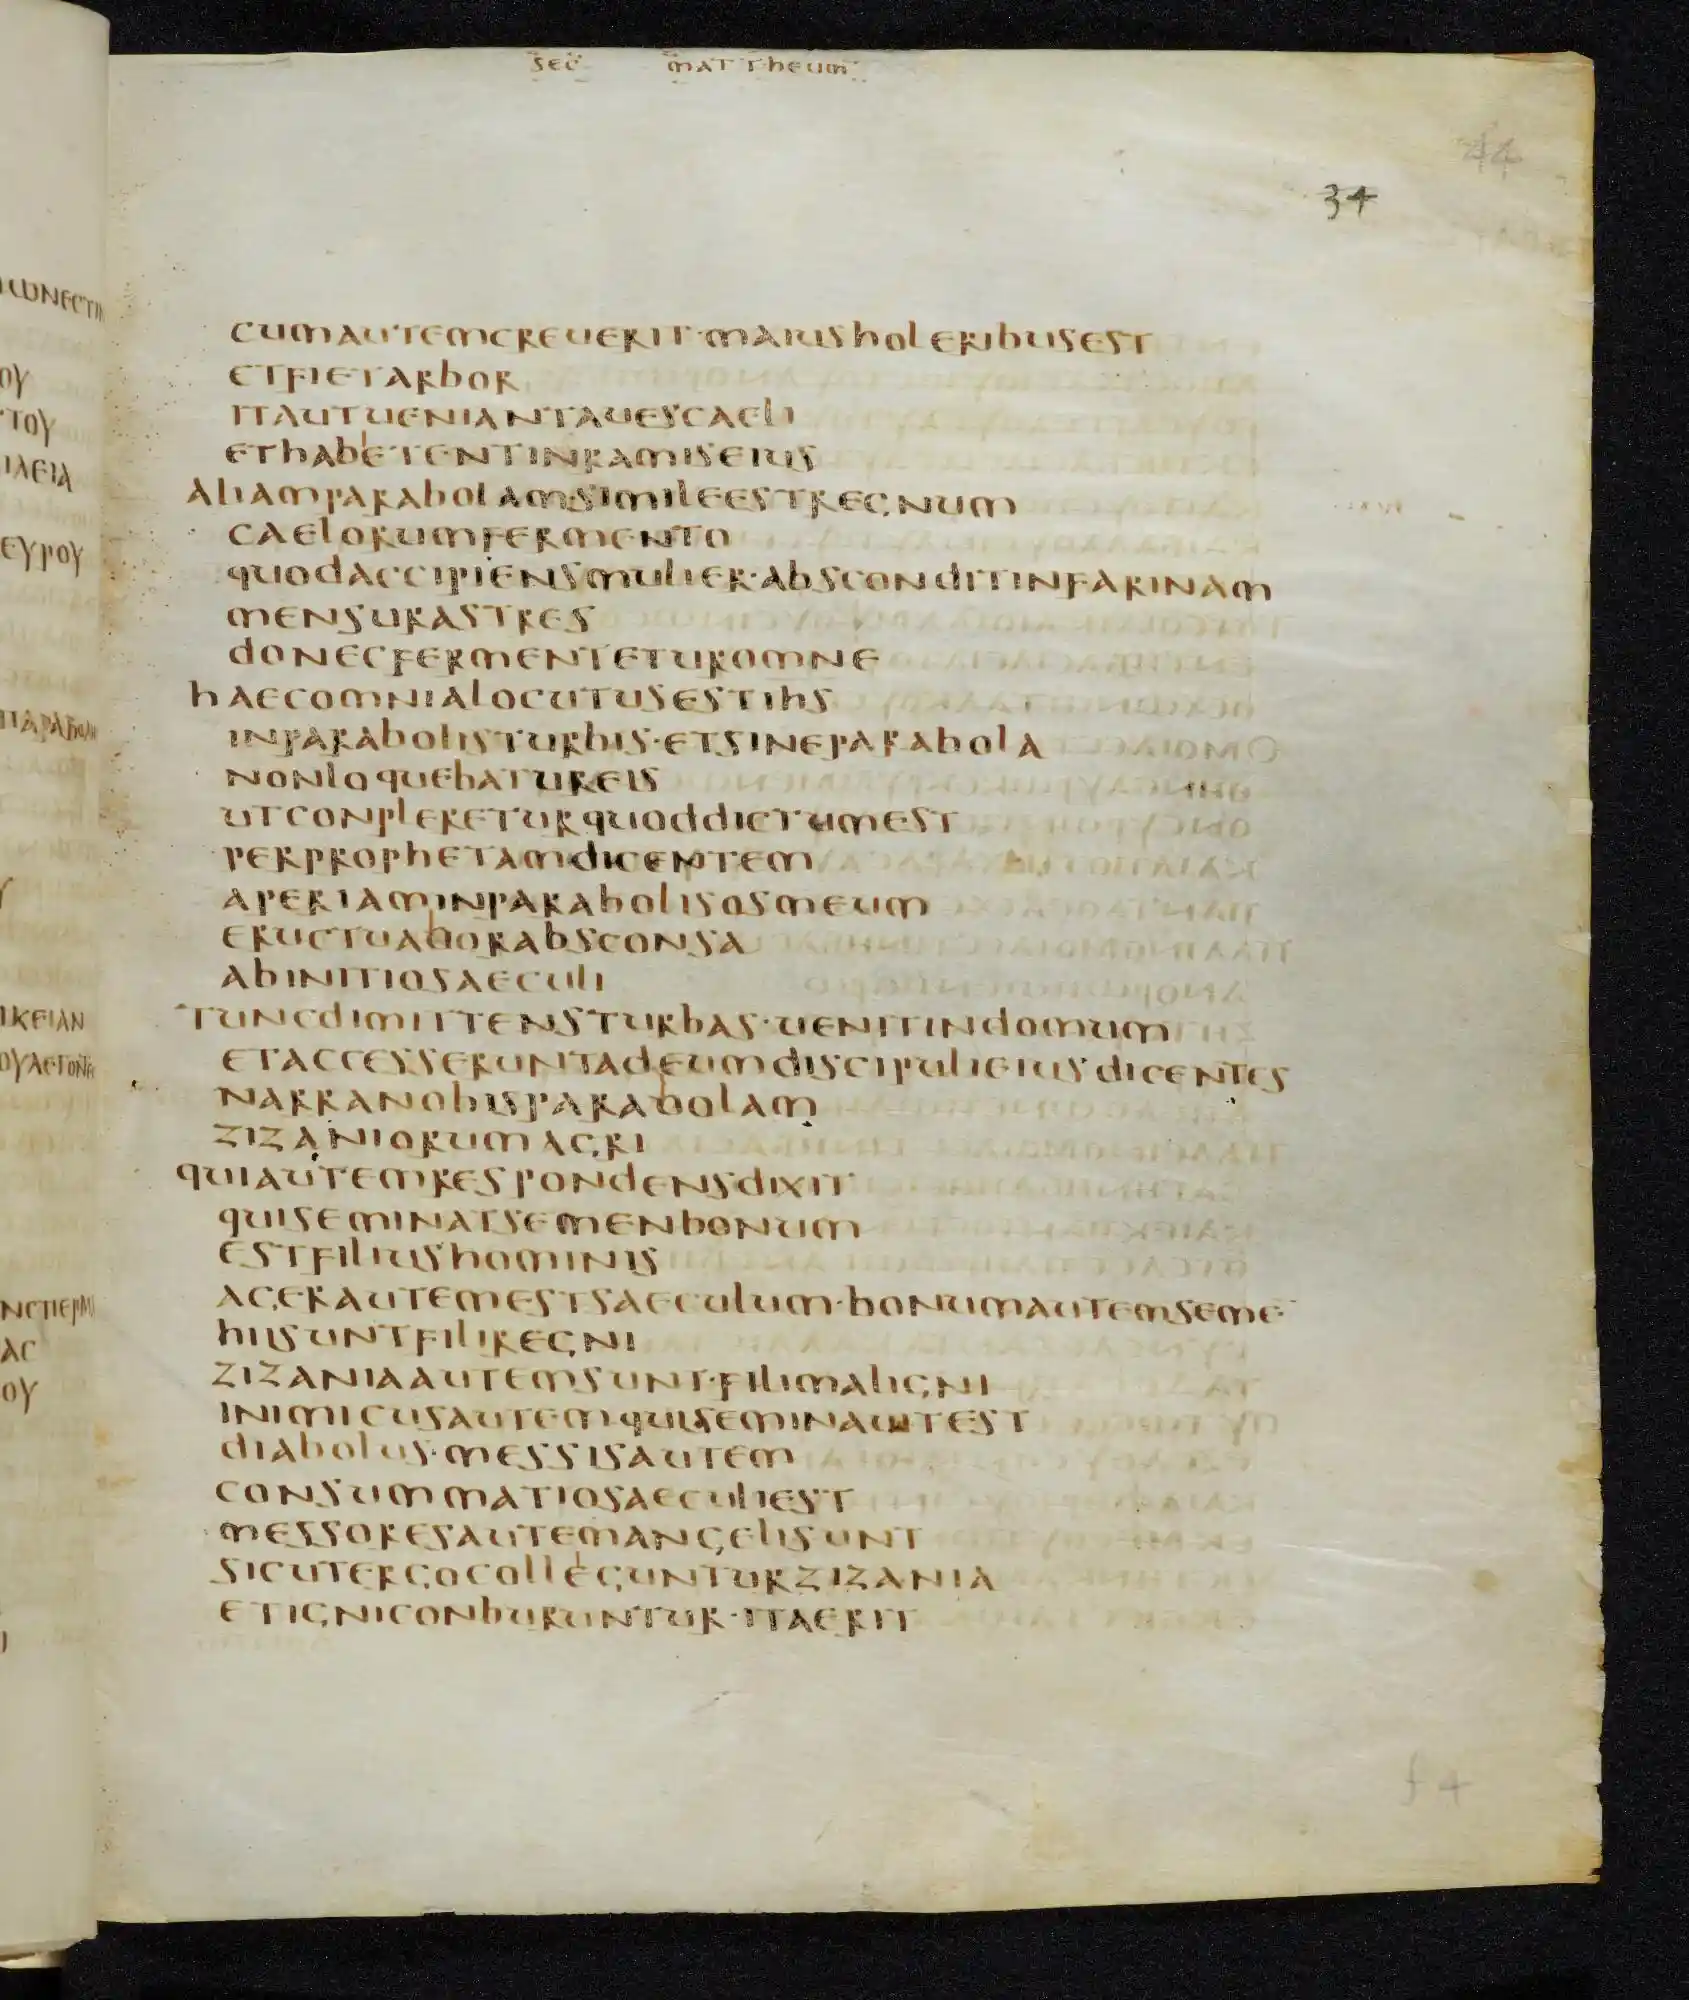 SEC MATTHEUM
44
34
CUMAUTEMCREUERIT·MAIUSHOLERIBUSEST
ETFIETARBOR
ITAUTUENIANTAUESCAELI
ETHABETENTINRAMISEIUS
ALIAMPARABOLAM·SIMILEESTREGNUM
CAELORUMFERMENTO
QUODACCIPIENSMULIER·ABSCONDITINFARINAM
MENSURASTRES
DONECFERMENTETUROMNE
HAECOMNIALOCUTUSESTIHS
INPARABOLISTURBIS·ETSINEPARABOLA
NONLOQUEBATUREIS
UTCONPLERETURQUODDICTUMEST
PERPROPHETAMDICENTEM
APERIAMINPARABOLISOSMEUM
ERUCTUABORABSCONSA
ABINITIOSAECULI
TUNCDIMITTENSTURBAS·UENITINDOMUM
ETACCESSERUNTADEUMDISCIPULIEIUSDICENTES
NARRANOBISPARABOLAM
ZIZANIORUMAGRI
QUIAUTEMRESPONDENSDIXIT
QUISEMINATSEMENBONUM
ESTFILIUSHOMINIS
AGERAUTEMESTSAECULUM·BONUMAUTEMSEME
HIISUNTFILIREGNI
ZIZANIAAUTEMSUNT·FILIMALIGNI
INIMICUSAUTEMQUISEMINAUITEST
DIABOLUS·MESSISAUTEM
CONSUMMATIOSAECULIEST
MESSORESAUTEMANGELISUNT
SICUTERGOCOLLEGUNTURZIZANIA
ETIGNICONBURUNTUR·ITAERIT
f4